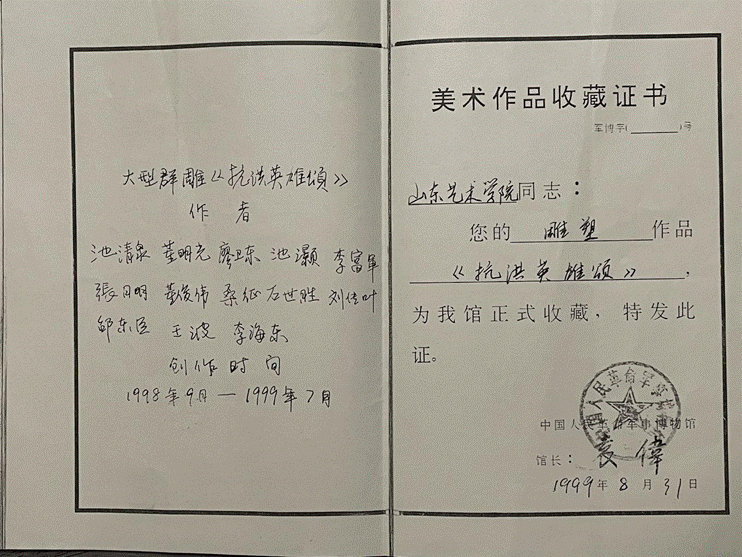 大型群雕《抗洪英雄頌》
作 者
池清泉 董明光 廖卫东 池灏 李富军
張月明 董俊伟 桑征 石世胜 刘佳叶
邹东臣 王波 李海东
创作时间
1998年9月—1999年7月
美术作品收藏证书
军博字( )号
山东艺术学院同志：
您的 雕塑 作品
《抗洪英雄頌》，
为我馆正式收藏，特发此
证。
中国人民革命军事博物馆
馆长：袁偉
1999年8月31日